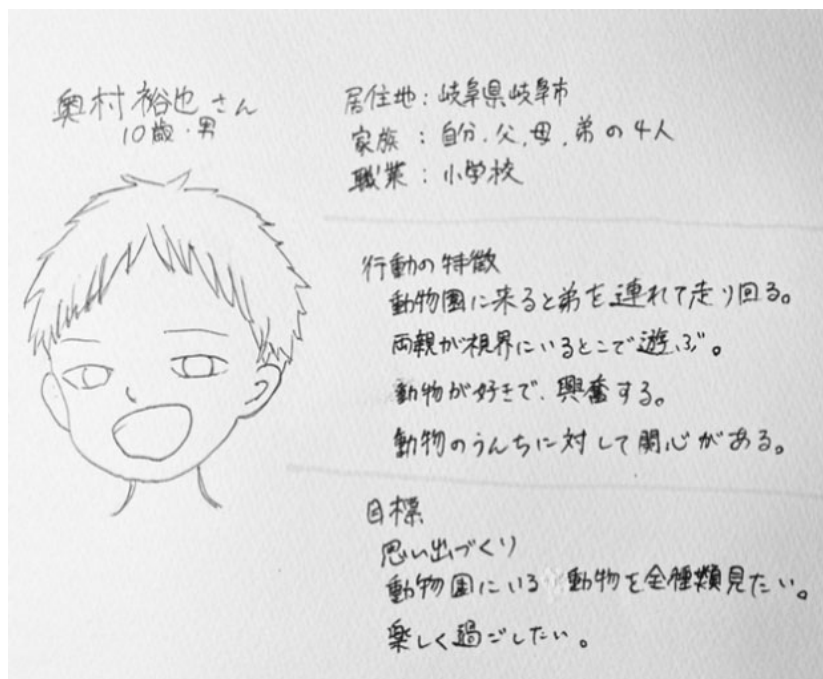 奥村裕也さん
10歳・男
居住地：岐阜県岐阜市
家族：自分、父、母、弟の4人
職業：小学校
行動の特徴
動物園に来ると弟を連れて走り回る。
両親が視界にいるとこで遊ぶ。
動物が好きで、興奮する。
動物のうんちに対して関心がある。
目標
思い出づくり
動物園にいる動物を全種類見たい。
楽しく過ごしたい。